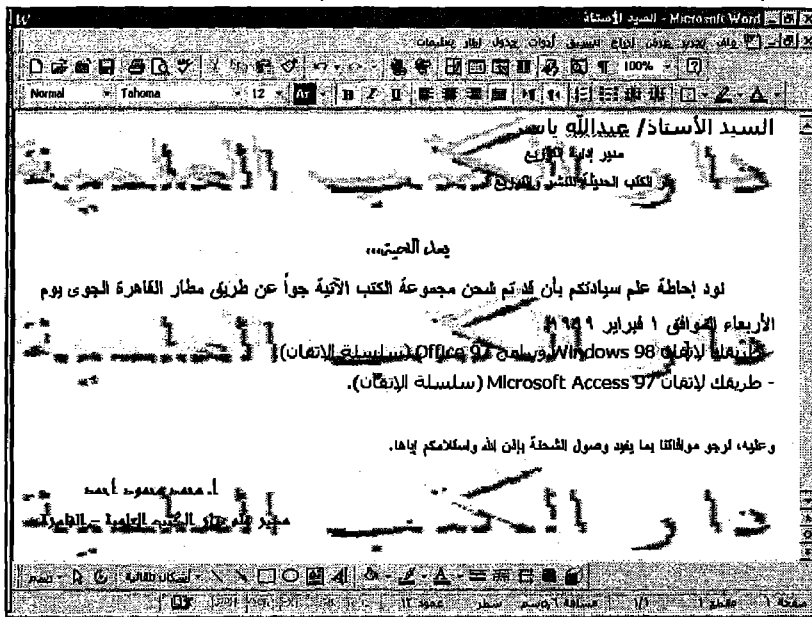 Microsoft Word - السيد الأستاذ
ملف تحرير عرض إدراج تنسيق أدوات جدول إطار تعليمات
100%
Normal Tahoma 12
السيد الأستاذ/ عبدالله ياسر
مدير إدارة التوزيع
الكتب الحديثة للنشر والتوزيع
بعد التحية،،،
نود إحاطة علم سيادتكم بأن قد تم شحن مجموعة الكتب الآتية جواً عن طريق مطار القاهرة الجوى يوم
الأربعاء الموافق ١ فبراير ١٩٩٩:
- طريقك لإتقان Windows 98 وبرنامج Office 97 (سلسلة الإتقان)
- طريقك لإتقان Microsoft Access 97 (سلسلة الإتقان).
وعليه، نرجو موافاتنا بما يفيد وصول الشحنة بإذن الله واستلامكم إياها.
أ. محمد محمود أحمد
مدير عام دار الكتب العلمية - القاهرة
دار الكتب العلمية
أشكال تلقائية
صفحة ١ مقطع ١ 1/1 مسافة سطر عمود ١٢